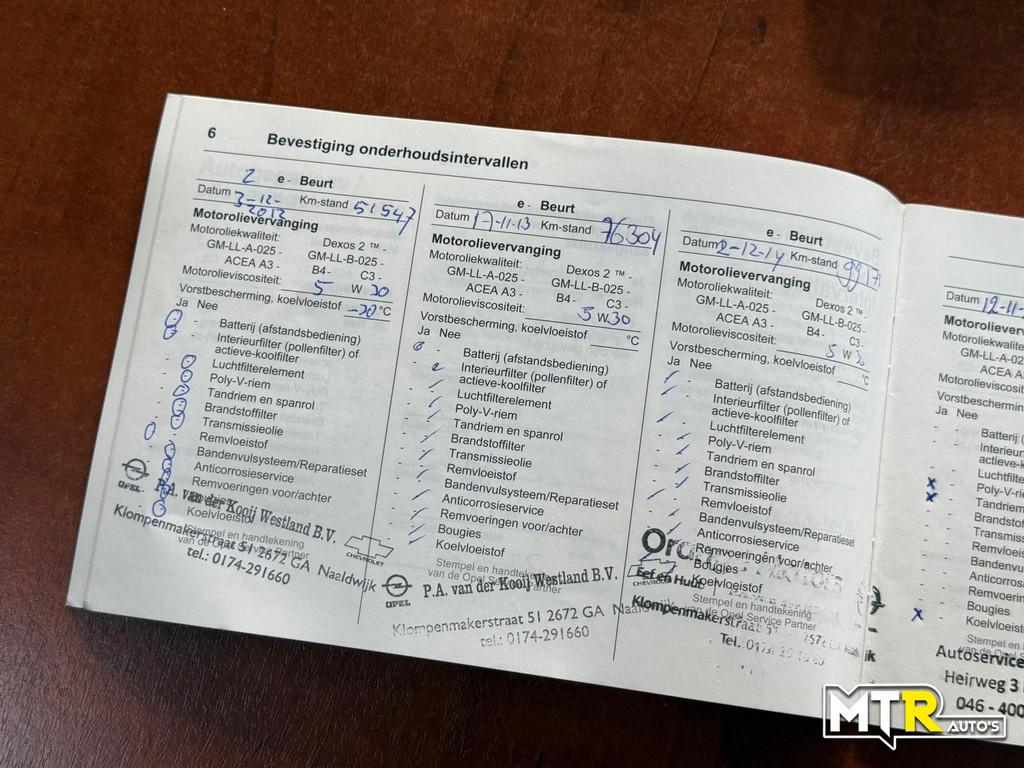 6 Bevestiging onderhoudsintervallen
2 e - Beurt
Datum 3-12-2012 Km-stand 51547
Motorolievervanging
Motoroliekwaliteit: Dexos 2 ™ -
GM-LL-A-025 - GM-LL-B-025 -
ACEA A3 - B4- C3 -
Motorolieviscositeit: 5 W 30
Vorstbescherming, koelvloeistof -20 °C
Ja Nee
- - Batterij (afstandsbediening)
- - Interieurfilter (pollenfilter) of
actieve-koolfilter
- - Luchtfilterelement
- - Poly-V-riem
- - Tandriem en spanrol
- - Brandstoffilter
- - Transmissieolie
- - Remvloeistof
- - Bandenvulsysteem/Reparatieset
- - Anticorrosieservice
- - Remvoeringen voor/achter
- - Bougies
- - Koelvloeistof
Stempel en handtekening
van de Opel Service Partner
OPEL P.A. van der Kooij Westland B.V. CHEVROLET
Klompenmakerstraat 51 2672 GA Naaldwijk
tel.: 0174-291660
e - Beurt
Datum 17-11-13 Km-stand 76304
Motorolievervanging
Motoroliekwaliteit: Dexos 2 ™ -
GM-LL-A-025 - GM-LL-B-025 -
ACEA A3 - B4- C3 -
Motorolieviscositeit: 5 W 30
Vorstbescherming, koelvloeistof °C
Ja Nee
- - Batterij (afstandsbediening)
- - Interieurfilter (pollenfilter) of
actieve-koolfilter
- - Luchtfilterelement
- - Poly-V-riem
- - Tandriem en spanrol
- - Brandstoffilter
- - Transmissieolie
- - Remvloeistof
- - Bandenvulsysteem/Reparatieset
- - Anticorrosieservice
- - Remvoeringen voor/achter
- - Bougies
- - Koelvloeistof
Stempel en handtekening
van de Opel Service Partner
OPEL P.A. van der Kooij Westland B.V. CHEVROLET
Klompenmakerstraat 51 2672 GA
tel.: 0174-291660
e - Beurt
Datum 2-12-14 Km-stand
Motorolievervanging
Motoroliekwaliteit: Dexos 2 ™ -
GM-LL-A-025 - GM-LL-B-025 -
ACEA A3 - B4- C3 -
Motorolieviscositeit: 5 W 30
Vorstbescherming, koelvloeistof °C
Ja Nee
- - Batterij (afstandsbediening)
- - Interieurfilter (pollenfilter) of
actieve-koolfilter
- - Luchtfilterelement
- - Poly-V-riem
- - Tandriem en spanrol
- - Brandstoffilter
- - Transmissieolie
- - Remvloeistof
- - Bandenvulsysteem/Reparatieset
- - Anticorrosieservice
- - Remvoeringen voor/achter
- - Bougies
- - Koelvloeistof
Stempel en handtekening
van de Opel Service Partner
Eef en Huib
Klompenmakerstraat
Tel.
Datum 12-11-
Motorolieverv
Motoroliekwalite
GM-LL-A-02
ACEA A3
Motorolieviscosit
Vorstbescherming
Ja Nee
- - Batterij (
- - Interieur
actieve-k
- - Luchtfilt
x - Poly-V-ri
x - Tandriem
- - Brandsto
- - Transmis
- - Remvloei
- - Bandenv
- - Anticorro
- - Remvoeri
x - Bougies
- - Koelvloeis
Stempel en h
van de Opel S
Autoservice
Heirweg 3
046 - 400
MTR AUTO'S